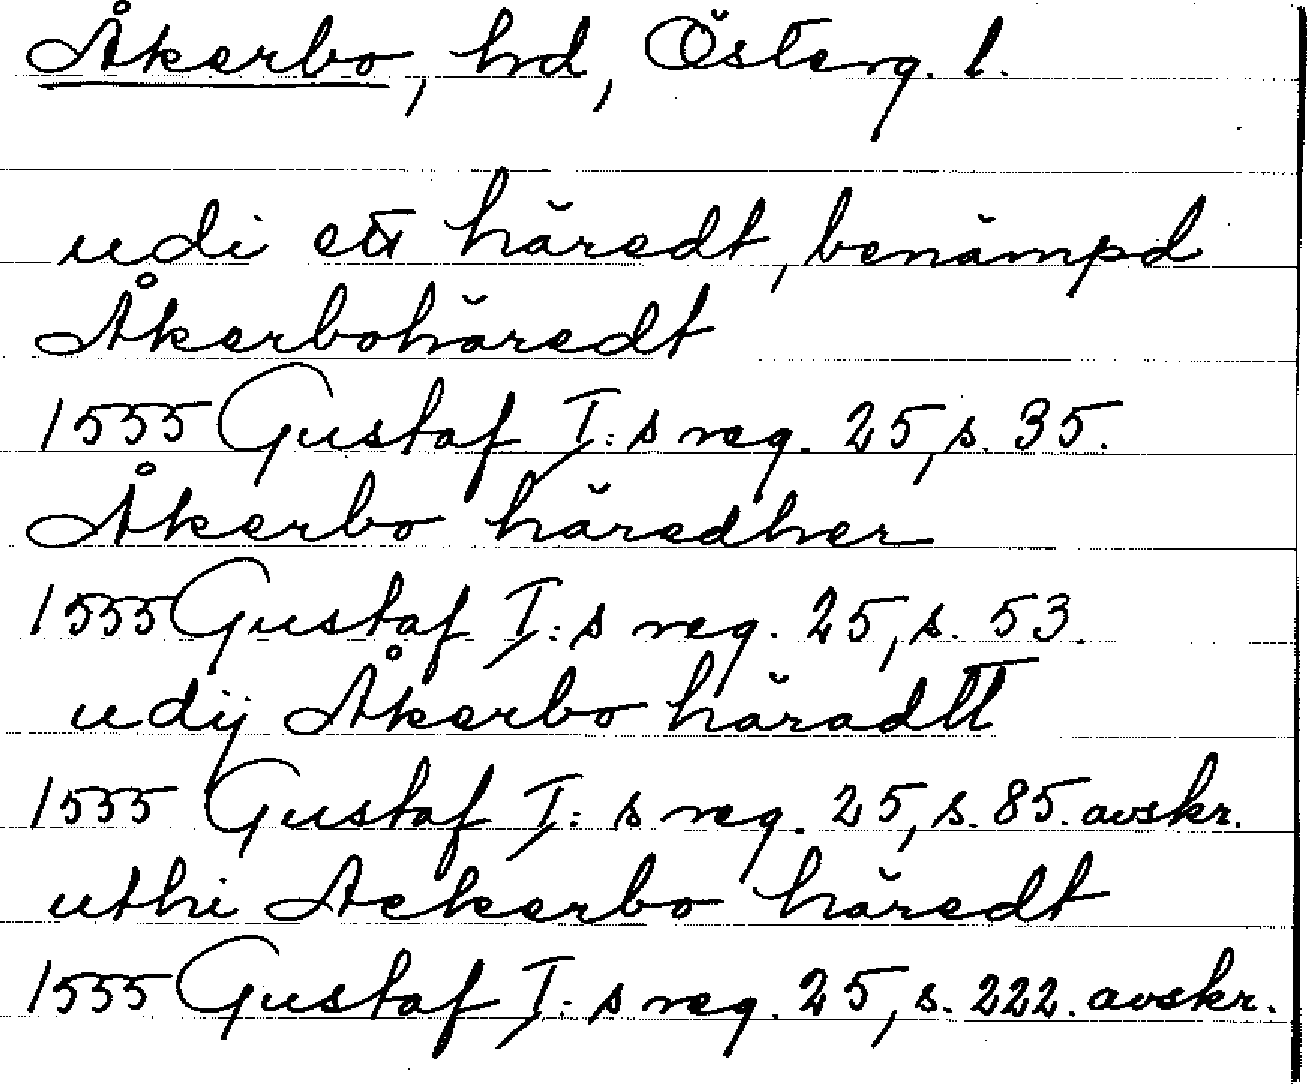 Åkerbo, hrd, Österg. l.
udi ett häredt, benämpd
Åkerbohäredt
1555 Gustaf I:s reg. 25, s. 35.
Åkerbo häredher
1555 Gustaf I:s reg. 25, s. 53.
udij Åkerbo häradtt
1555 Gustaf I:s reg. 25, s. 85. avskr.
uthi Ackerbo häredt
1555 Gustaf I:s reg. 25, s. 222. avskr.